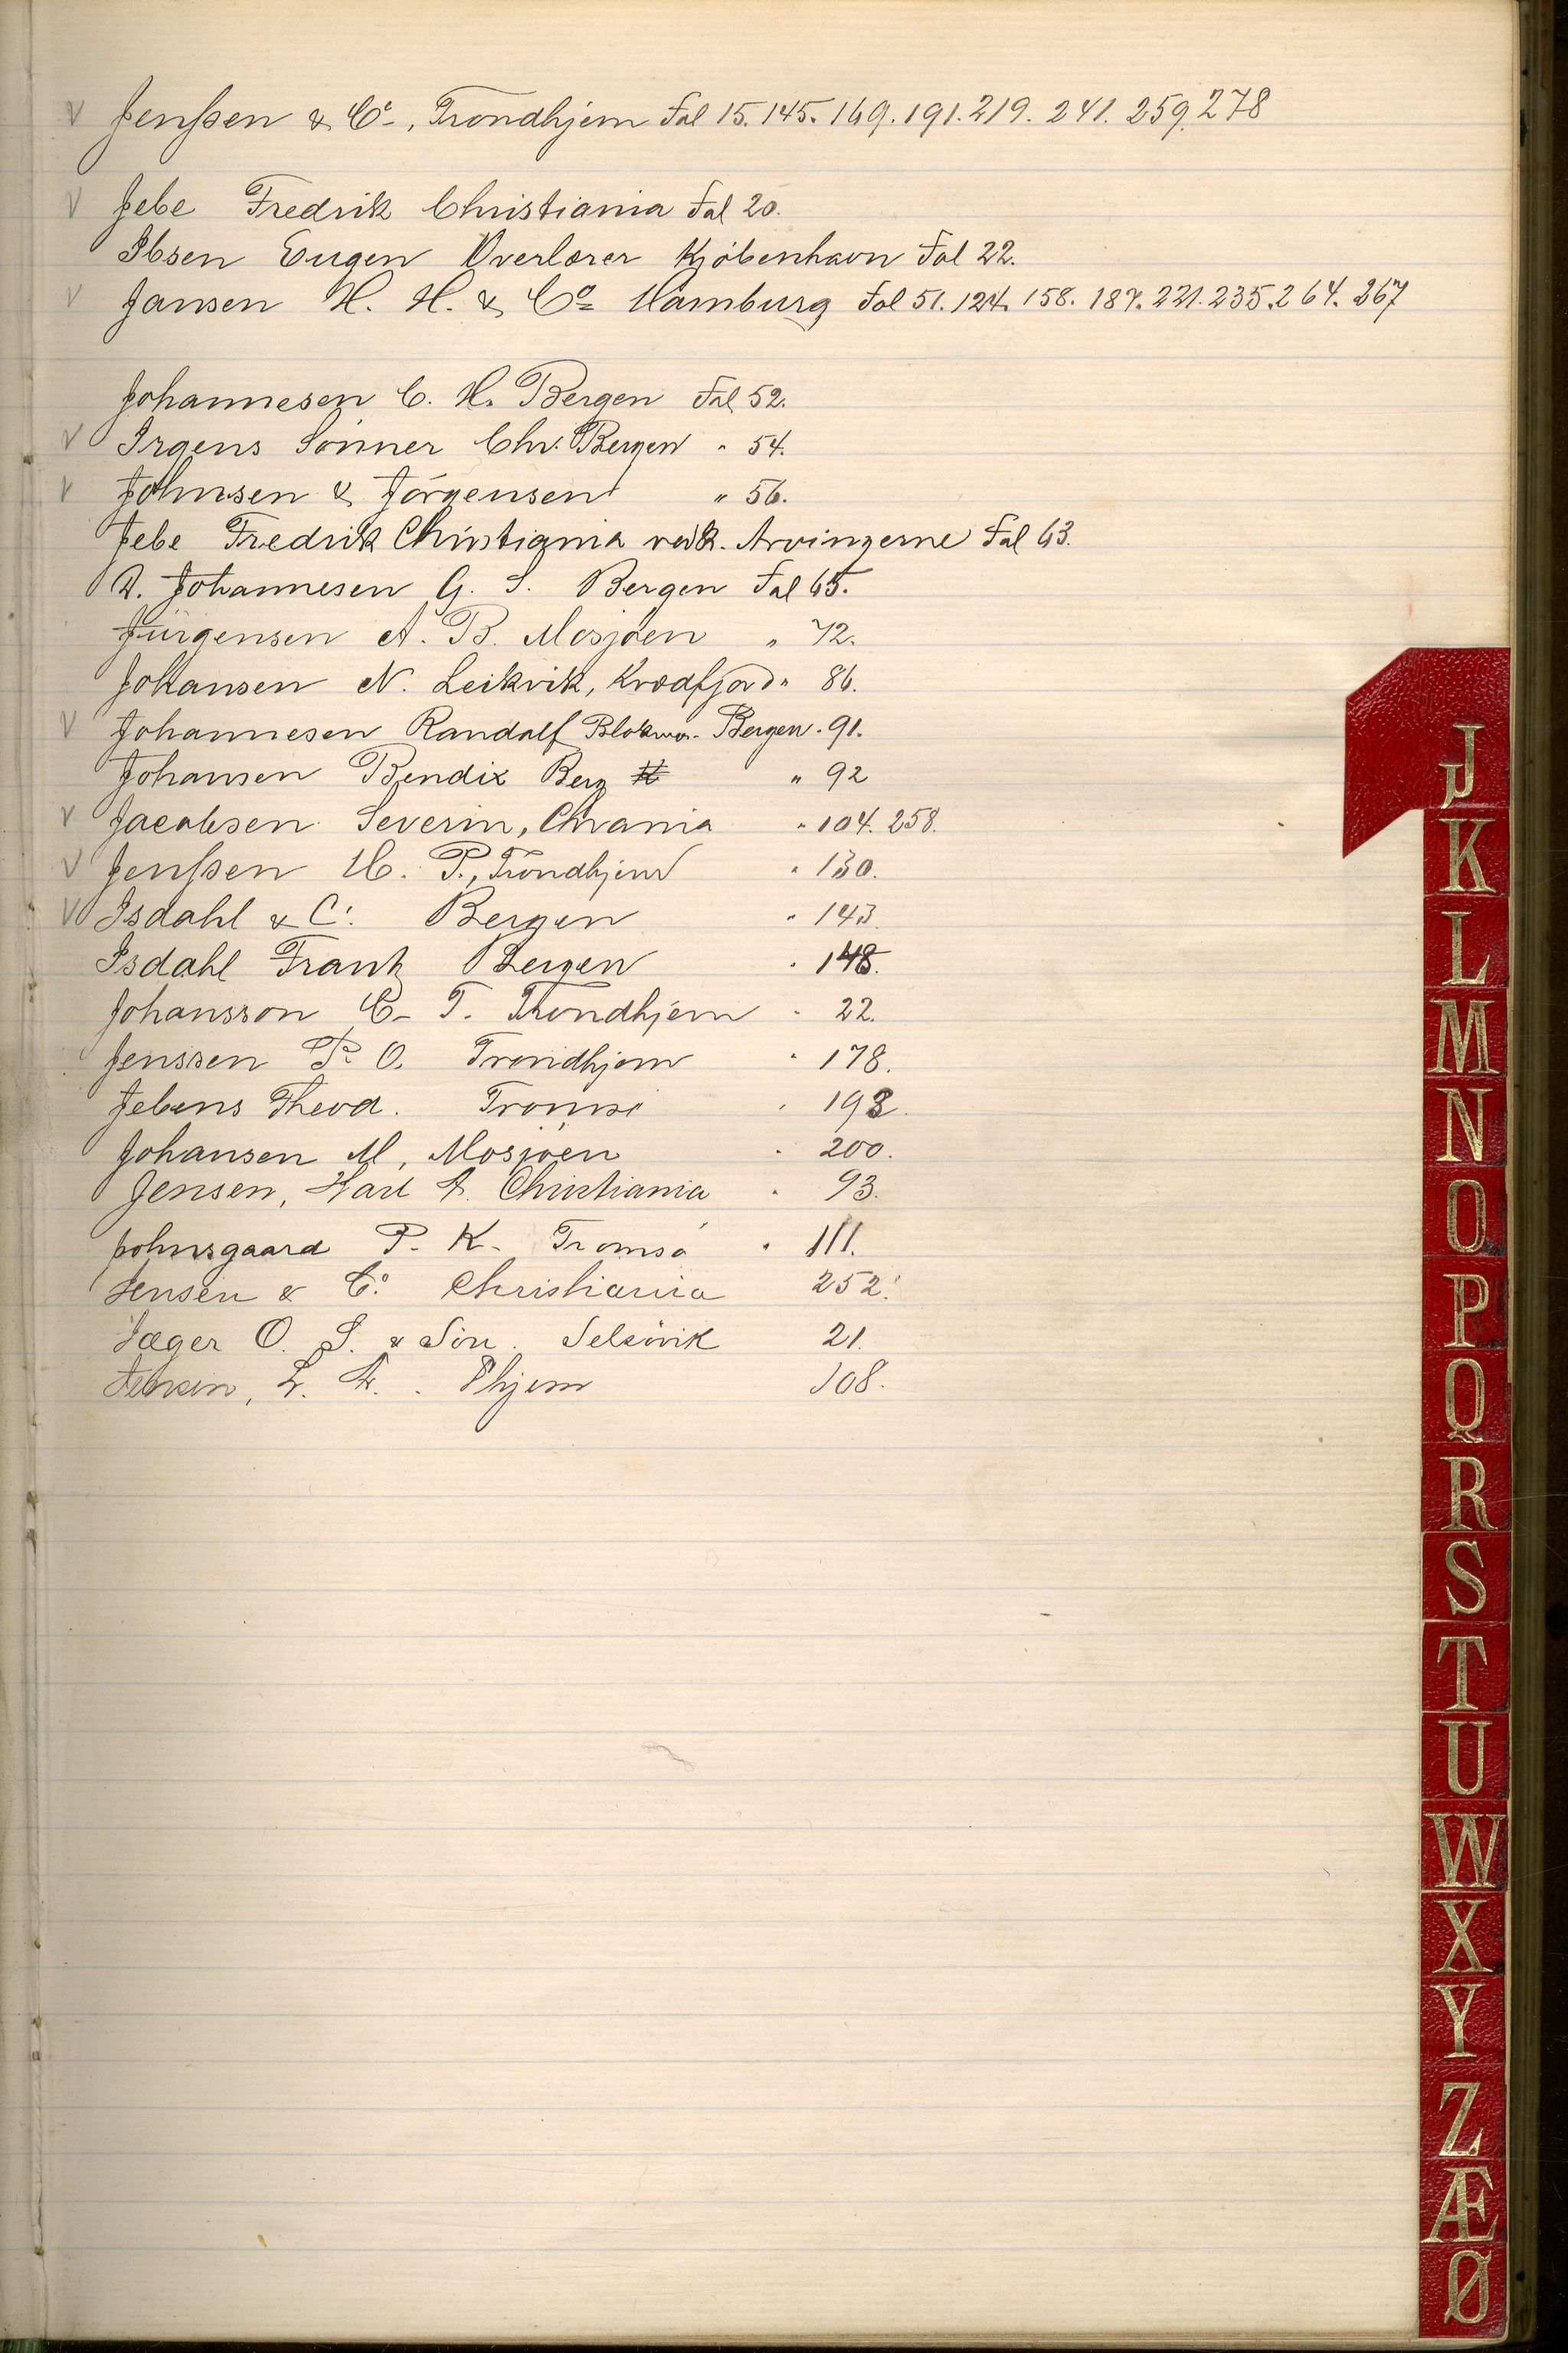 V Jenssen & Co, Trondhjem Fol 15. 145. 169. 191. 219. 241. 259. 278
V Jebe Fredrik Christiania Fol 20.
Ibsen Eugen Overlærer Kjöbenhavn Fol 22.
V Jansen H. H. & Co Hamburg Fol 51. 124. 158. 187. 221. 235. 264. 267
Johannesen C. H. Bergen Fol 52.
V Irgens Sönner Chr. Bergen " 54.
V Johnsen & Jörgensen " 56.
Jebe Fredrik Christiania vedk. Arvingerne Fol 63.
D. Johannesen G. S. Bergen Fol 65.
Jürgensen A. B. Mosjöen " 72.
Johansen N. Leikvik, Kvædfjord " 86.
V Johannesen Randolf Bergen " 91.
Johansen Bendix Berg " 92
V Jacobsen Severin, Chrania " 104. 258.
V Jenssen H. P., Trondhjem " 130.
V Isdahl & Co. Bergen " 143.
Isdahl Frantz Bergen " 148.
Johansson C. T. Trondhjem " 22.
Jenssen P. O. Trondhjem " 178.
Jebens Theod. Tromsö " 193.
Johansen M, Mosjöen " 200.
Jensen, Harl A. Christiania " 93.
Johnsgaard P. K. Tromsö " 111.
Jensen & Co Christiania 252.
Jæger O. S. & Sön. Selsövik 21.
Jensen, L. Thjem 108.
J
K
L
M
N
O
P
Q
R
S
T
U
W
X
Y
Z
Æ
Ø